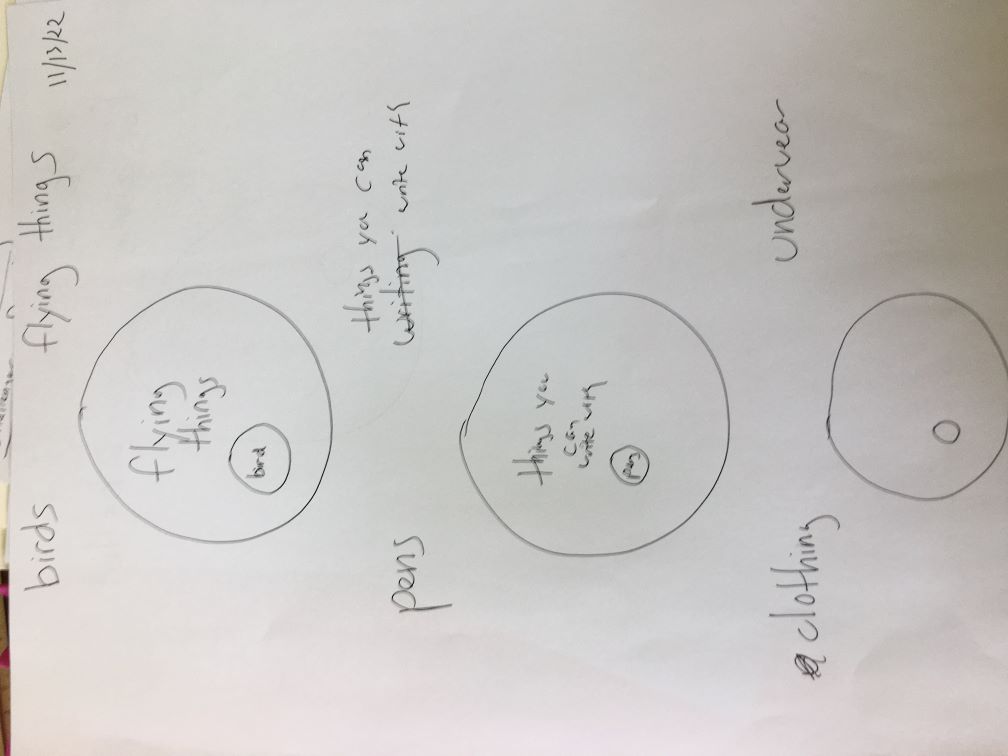 birds flying things 11/13/22
flying
things
bird
things you can
pens writing write with
things you
can
write with
pens
clothing underwear